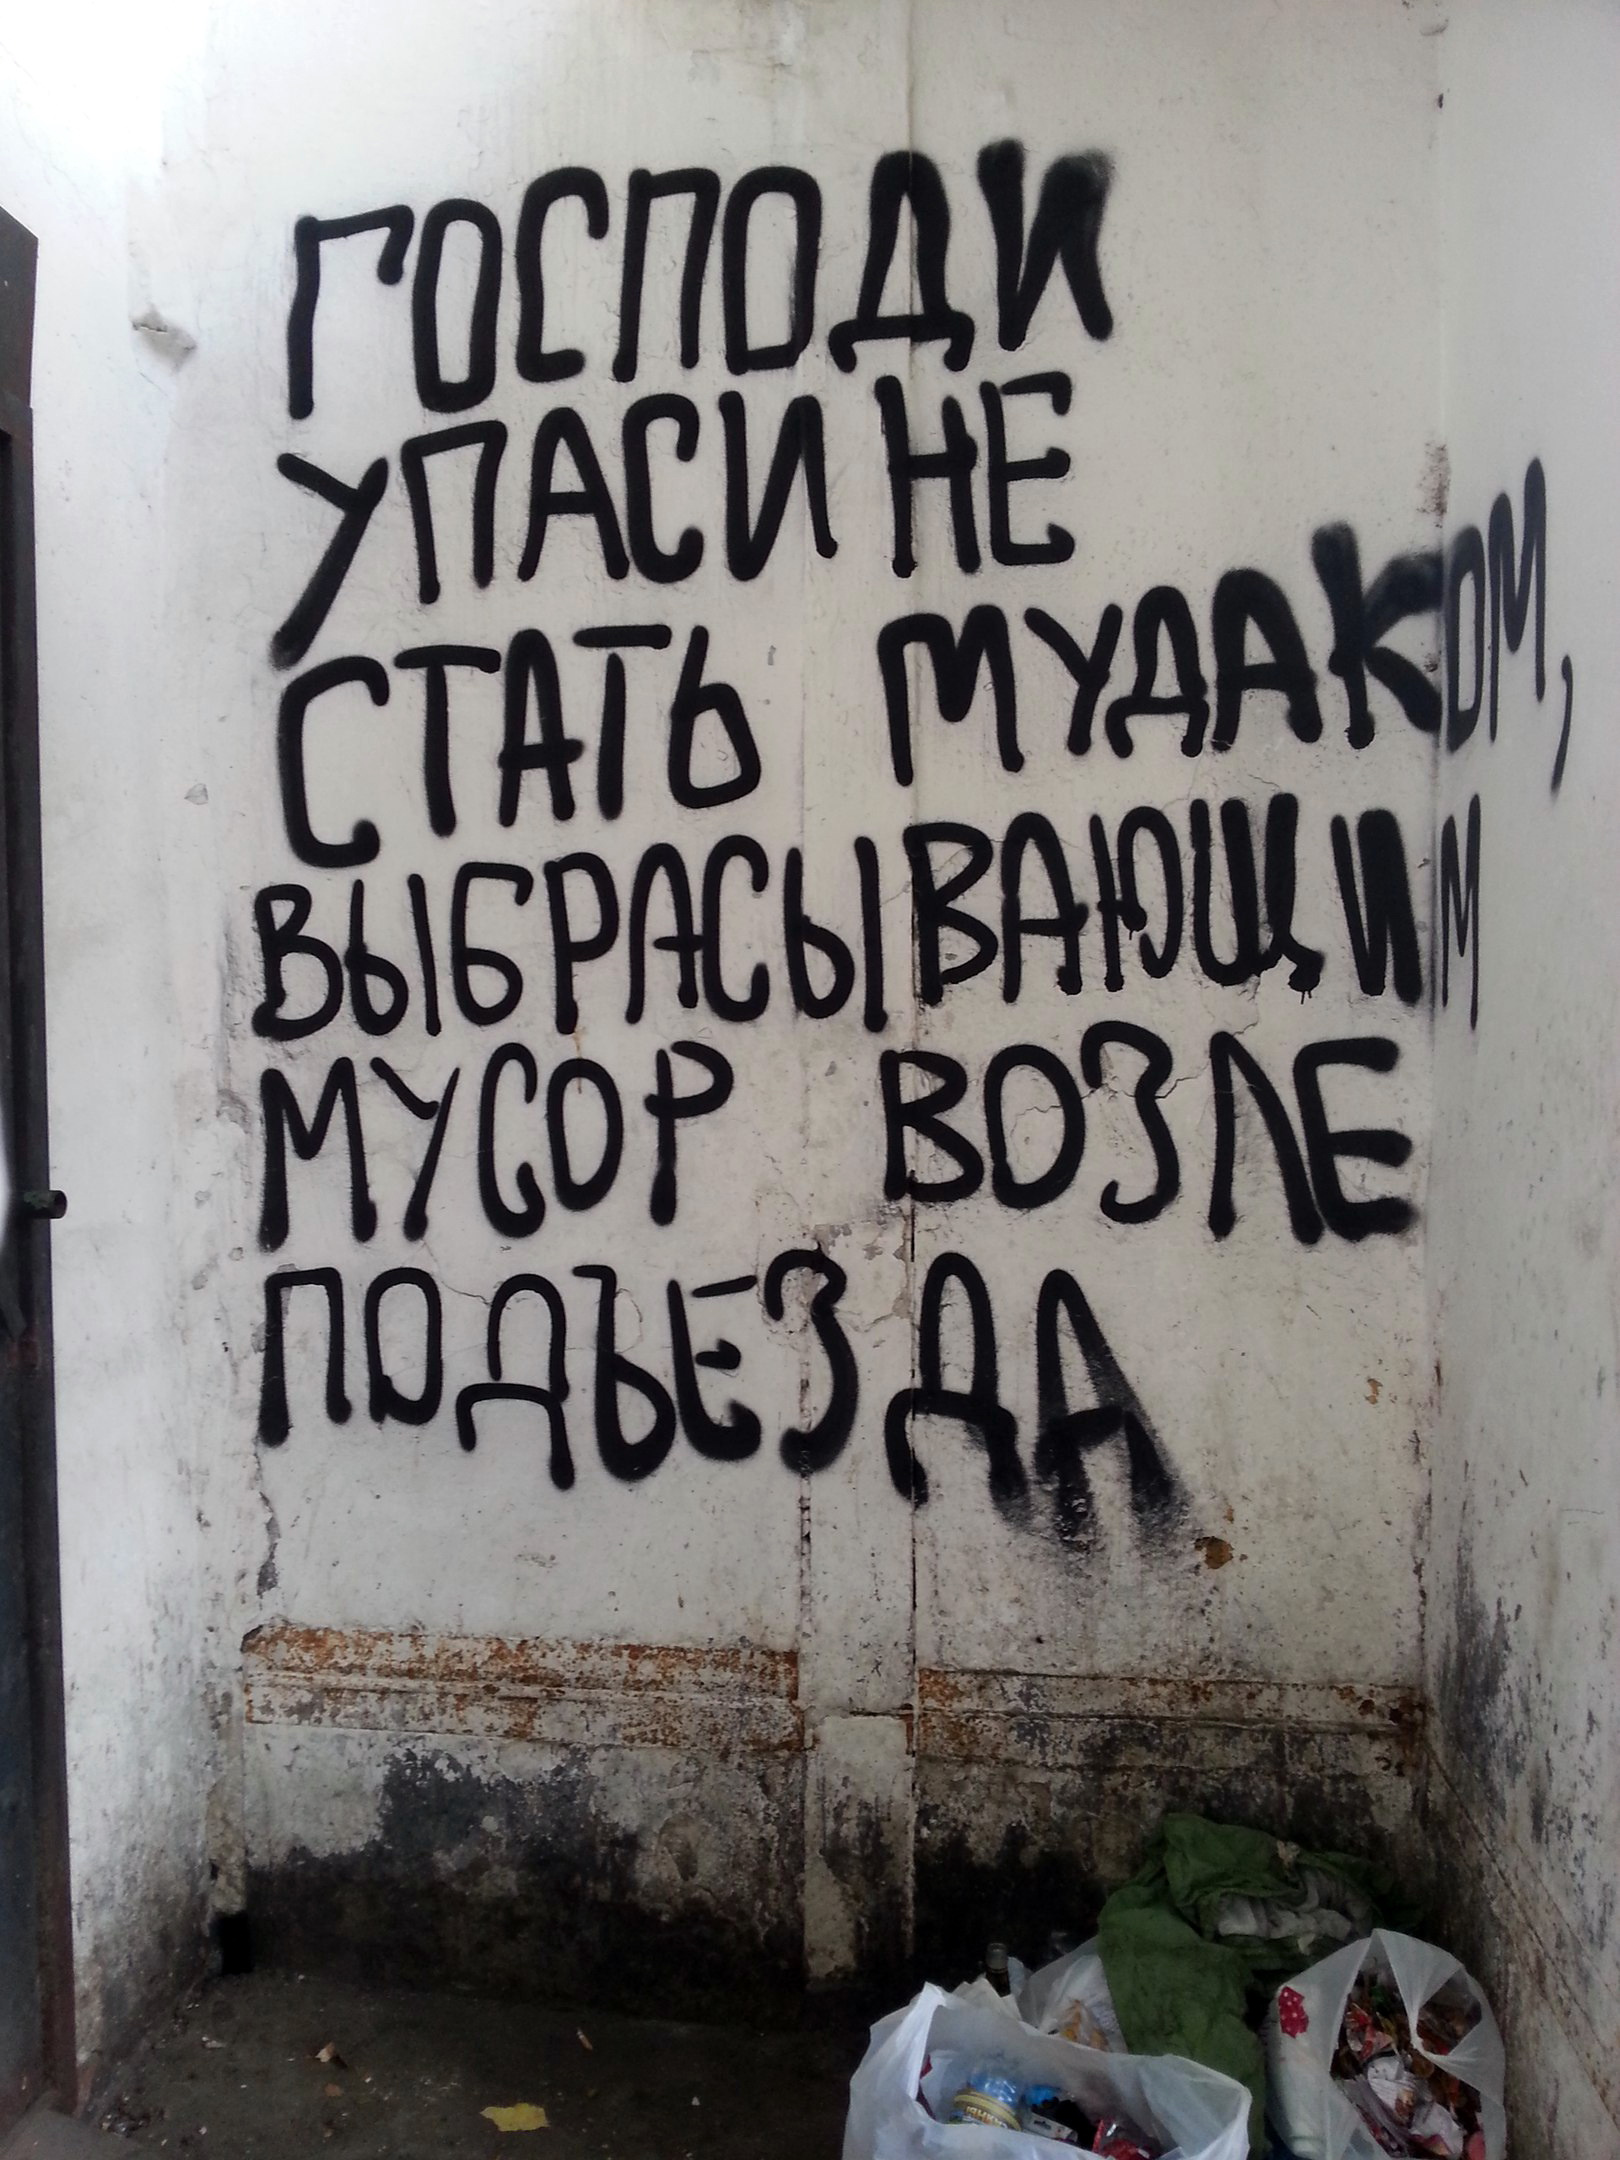 ГОСПОДИ
УПАСИ НЕ
СТАТЬ МУДАКОМ,
ВЫБРАСЫВАЮЩИМ
МУСОР ВОЗЛЕ
ПОДЪЕЗДА